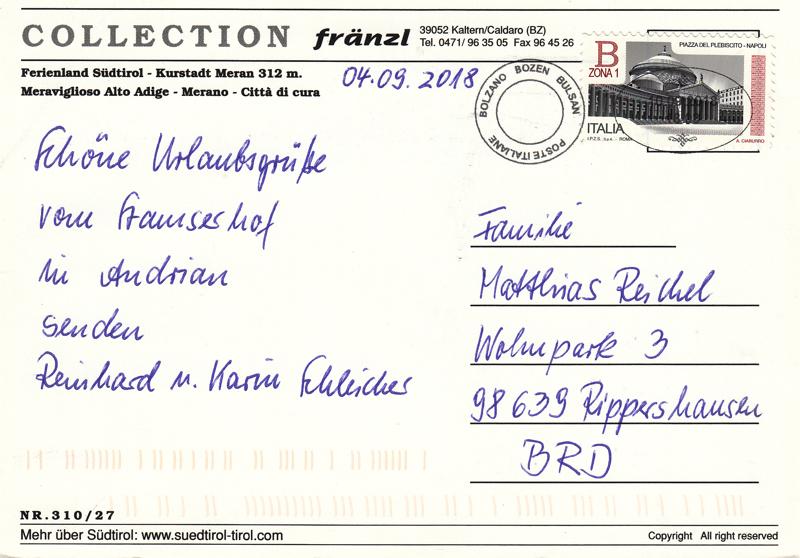 COLLECTION fränzl 39052 Kaltern/Caldaro (BZ)
Tel. 0471/ 96 35 05 Fax 96 45 26
Ferienland Südtirol - Kurstadt Meran 312 m.
Meraviglioso Alto Adige - Merano - Città di cura
04.09.2018
BOLZANO BOZEN BULSAN
POSTE ITALIANE
B
ZONA 1
PIAZZA DEL PLEBISCITO - NAPOLI
ITALIA
I.P.Z.S. S.p.A. - ROMA
A. CIABURRO
Schöne Urlaubsgrüße
vom Stamserhof
in Andrian
senden
Reinhard u. Karin Schleicher
Familie
Matthias Reichel
Wohnpark 3
98 639 Rippershausen
BRD
NR.310/27
Mehr über Südtirol: www.suedtirol-tirol.com
Copyright All right reserved